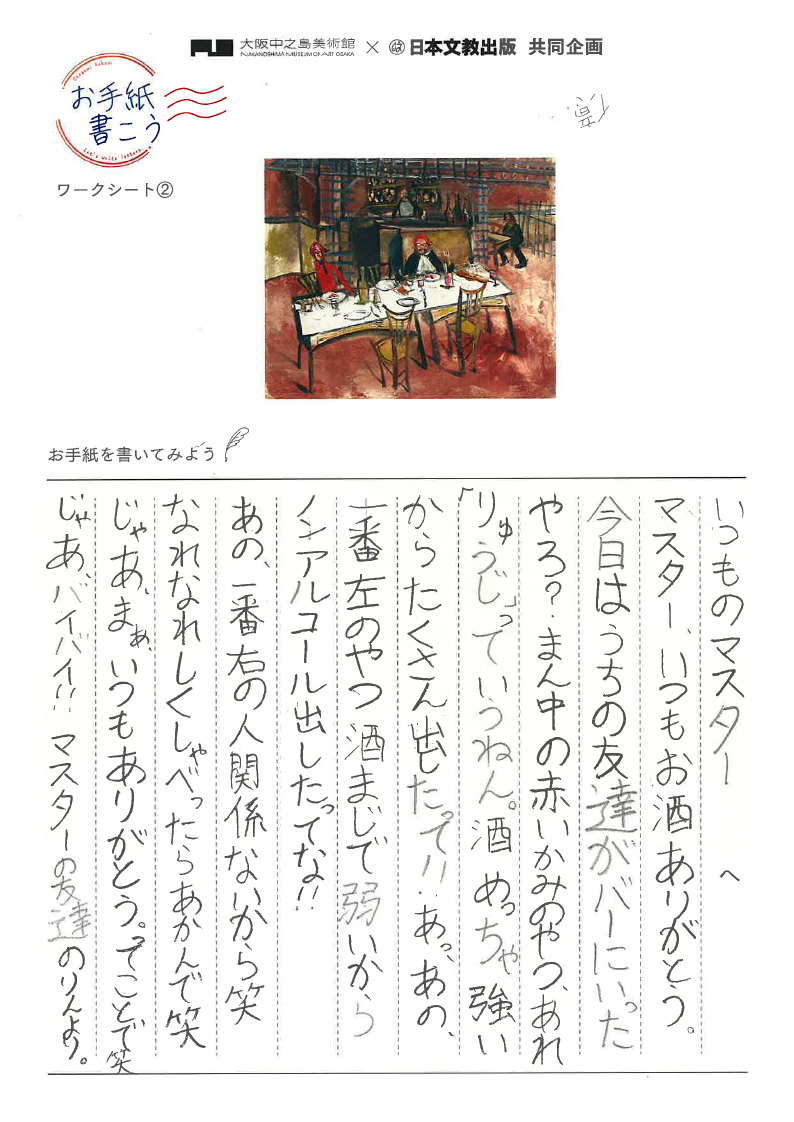 大阪中之島美術館
NAKANOSHIMA MUSEUM OF ART OSAKA
×
日本文教出版 共同企画
Osaka
お手紙
書こう
Let's write letters.
ワークシート②
お手紙を書いてみよう
いつものマスターへ
マスター、いつもお酒ありがとう。
今日はうちの友達がバーにいった
やろ?まん中の赤いかみのやつ、あれ
「りゅうじ」っていうねん。酒めっちゃ強い
からたくさん出したって!!あっ、あの、
一番左のやつ酒まじで弱いから
ノンアルコール出したってな!!
あの、一番右の人関係ないから笑
なれなれしくしゃべったらあかんで笑
じゃあ、まぁ、いつもありがとう。ってことで笑
じゃあ、バイバイ!!マスターの友達のりんより。